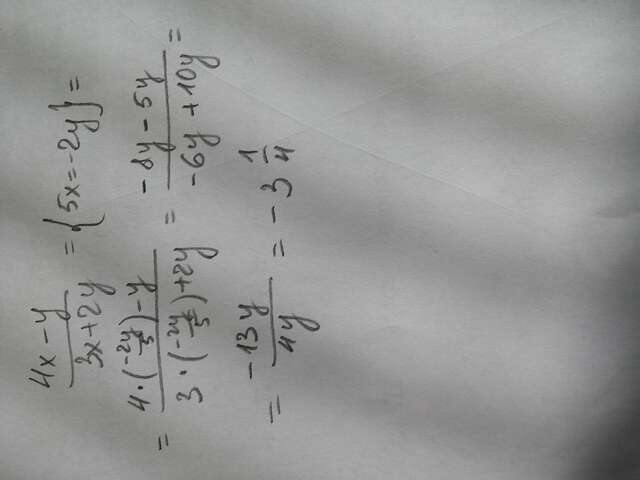 (4x - y)/(3x + 2y) = {5x = -2y} =
= (4 · (-2y/5) - y)/(3 · (-2y/5) + 2y) = (-8y - 5y)/(-6y + 10y) =
= (-13y)/(4y) = -3 1/4